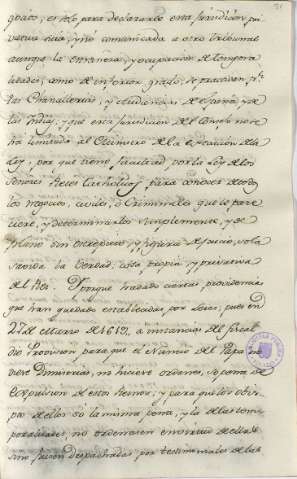 gocios; es solo para declararse esta Jurisdiccion pri-
vativa suia, y no comunicada a otro tribunal
aunque la enseñanza, y ocupacion de tempora
lidades, como de inferior grado, se practican pr.
las Chanzillerias, y Audiencias de España, y de
las Indias, y que esta Jurisdiccion del Consejo no se
ha limitado al Numero de la
Ley, por que tiene facultad, por la Ley de los
Señores Reies Catholicos para conocer de todos
los negocios, civiles, o Criminales que le pare
ciere, y determinarlos simplemente, y de
plano sin estrepito, y figura de Juicio, sola
savida la Verdad: esta es propia y privativa
del Rei. Porque ha dado ciertas providencias
que han quedado establecidas por Leies; pues en
27 de Marzo de 1612, a instancia del fiscal
dio Provision para que el Nuncio del Papa
diese Dimisorias, no hiciese ordenes, so pena de
Expulsion de estos Reinos; y para que los obis-
pos de ellos so la misma pena, y la de las tem-
poralidades, no ordenasen en virtud de ellas
sino fuesen despachadas por testimoniales de las